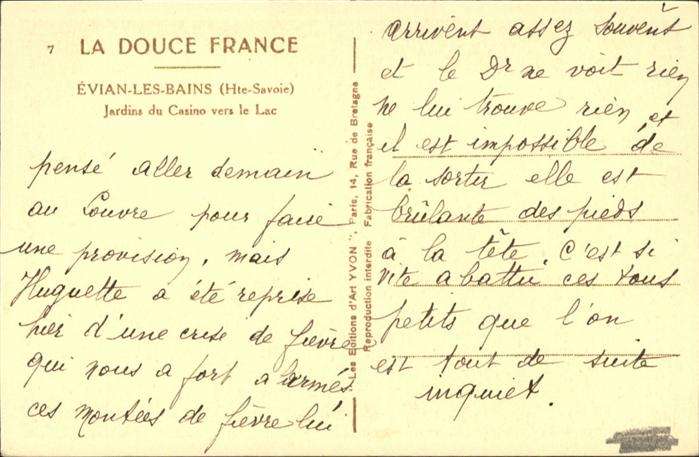 7
LA DOUCE FRANCE
ÉVIAN-LES-BAINS (Hte-Savoie)
Jardins du Casino vers le Lac
pensé aller demain
au Louvre pour faire
une provision, mais
Huguette a été reprise
hier d'une crise de fièvre
qui nous a fort alarmés
ces montées de fièvre lui
Les Editions d'Art YVON", Paris, 14, Rue de Bretagne
Reproduction interdite Fabrication française
arrivent assez souvent
et le Dr ne voit rien
ne lui trouve rien, et
il est impossible de
la sortir elle est
brûlante des pieds
à la tête. C'est si
vite abattu ces tous
petits que l'on
est tout de suite
inquiet.